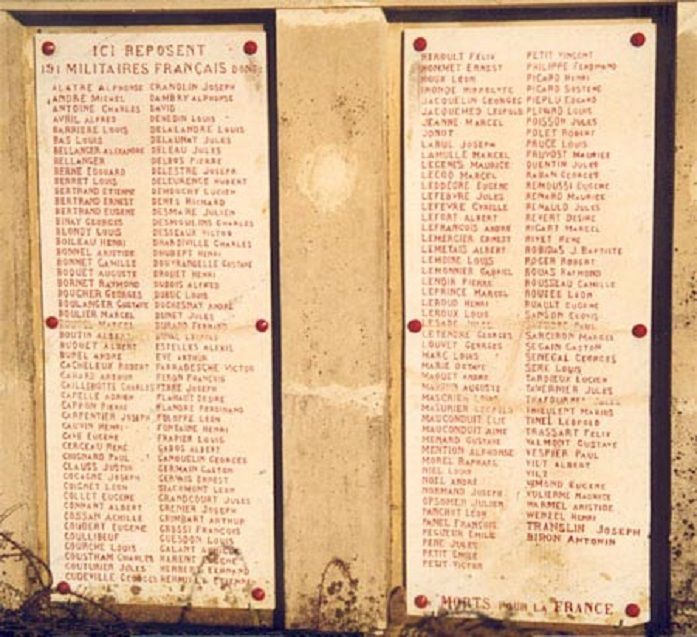 ICI REPOSENT
191 MILITAIRES FRANÇAIS DONT:
ALATRE ALPHONSE
ANDRÉ MICHEL
ANTOINE CHARLES
AVRIL ALFRED
BARRIERE LOUIS
BAS LOUIS
BELLANGER ALEXANDRE
BELLANGER
BERNE EDOUARD
BERRET LOUIS
BERTRAND ETIENNE
BERTRAND ERNEST
BERTRAND EUGENE
BINAY GEORGES
BLONDY LOUIS
BOILEAU HENRI
BONNEL ARISTIDE
BONNET CAMILLE
BOQUET AUGUSTE
BORNET RAYMOND
BOUCHER GEORGES
BOULANGER GUSTAVE
BOULIER MARCEL
MARCEL
BOUTIN ALBERT
BUQUET ALBERT
BUREL ANDRÉ
CACHELEUX ROBERT
ARTHUR
CAILLEBOTTE CHARLES
CAPELLE ADRIEN
CAPRON PIERRE
CARPENTIER JOSEPH
CAUVIN HENRI
CAVE EUGENE
CERCEAU RENÉ
CHIGNARD PAUL
CLAUSS JUSTIN
COCAGNE JOSEPH
COIGNET LEON
COLLET EUGENE
CONNANT ALBERT
COSSAN ACHILLE
COUDERT EUGENE
COULLIBEUF
COURCHE LOUIS
COUSTHAM CHARLES
COUTURIER JULES
CUDEVILLE GEORGES
CRANOLIN JOSEPH
DAMBRY ALPHONSE
DAVID
DENEDIN LOUIS
DELALANDRE LOUIS
DELAUNAY JULES
DELEAU JULES
DELBOS PIERRE
DELESTRE JOSEPH
DELEURENCE HUBERT
DEMOUCHY LUCIEN
DEMES RICHARD
DESMAIRE JULIEN
DESMOULINS CHARLES
DESSEAUX VICTOR
DHARDIVILLE CHARLES
DHUBERT HENRI
DOUVRANDELLE GUSTAVE
DROUET HENRI
DUBOIS ALFRED
DUBUC LOUIS
DUCHESNAY ANDRÉ
DUNET JULES
DURAND FERNAND
DUVAL LEOPOLD
ESTELLES ALEXIS
EVE ARTHUR
FARRADESCHE VICTOR
FERON FRANÇOIS
FERRE JOSEPH
FLAHAUT DESIRE
FLANDRE FERDINAND
FOLOPPE LEON
FONTAINE HENRI
FRAPIER LOUIS
GABOS ALBERT
GANQUELIN GEORGES
GERMAIN GASTON
GERVAIS ERNEST
GIACHMONT LEON
GRANDCOURT JULES
GRENIER JOSEPH
GRIMBART ARTHUR
GROSSI FRANÇOIS
GUESDON LOUIS
GALANT
HERENT EUGENE
HERBERT FERNAND
HERMILLY ETIENNE
HEROULT FELIX
HOMMET ERNEST
HOUX LEON
IRONDE HIPPOLYTE
JACQUELIN GEORGES
JACQUEMES LEOPOLD
JEANNE MARCEL
JONOT
LABUL JOSEPH
LAMULLE MARCEL
LECENES MAURICE
LECOQ MARCEL
LEDDECRE EUGENE
LEFEBVRE JULES
LEFEVRE CYRILLE
LEFORT ALBERT
LEFRANÇOIS ANDRÉ
LEMERCIER ERNEST
LEMETAIS ALBERT
LEMOINE LOUIS
LEMONNIER GABRIEL
LENOIR PIERRE
LEPRINCE MARCEL
LEROUD HENRI
LEROUX LOUIS
LESADE JULES
LETENDRE GEORGES
LOUVET GEORGES
MARC LOUIS
MARIE OCTAVE
MAQUET ANDRÉ
AUGUSTE
MASCRIEN LOUIS
MASURIER LEOPOLD
MAUCONDUIT ELIE
MAUCONDUIT AIME
MENARD GUSTAVE
MENTION ALPHONSE
MOREL RAPHAEL
NOEL LOUIS
NOEL ANDRÉ
NORMAND JOSEPH
OPSOMER JULIEN
PANCHOT LÉON
PANEL FRANÇOIS
PEGUEUR EMILE
PERE JULES
PETIT EMILE
PETIT VICTOR
PETIT VINCENT
PHILIPPE FERDINAND
PICARD HENRI
PICARD SOSTENE
PIEPLU EDGARD
PLUARD LOUIS
POISSON JULES
POLET ROBERT
PRUCE LOUIS
PRUVOST MAURICE
QUENTIN JULES
RABAN GEORGES
REMOUSSI EUGENE
RENARD MAURICE
RENAULD JULES
REVERT DESIRE
RICART MARCEL
RIVET RENE
ROBIDAS J. BAPTISTE
ROGER ROBERT
ROUAS RAYMOND
ROUSSEAU CAMILLE
ROUZEE LEON
RUAULT EUGENE
SANSON CLOVIS
PAUL
SARCIRON MARCEL
SEGAIN GASTON
SENEGAL GEORGES
SERE LOUIS
TARDIEUX LUCIEN
TAVERNIER JULES
TRAFOURNEL JULES
THIEULENT MARIUS
TINEL LEOPOLD
TRASSART FELIX
VALMONT GUSTAVE
VESPIER PAUL
VILT ALBERT
VILT
VIMOND EUGENE
VULIERME MAURICE
WARMEL ARISTIDE
WENZEL HENRI
TRANSLIN JOSEPH
BIRON ANTONIN
MORTS POUR LA FRANCE